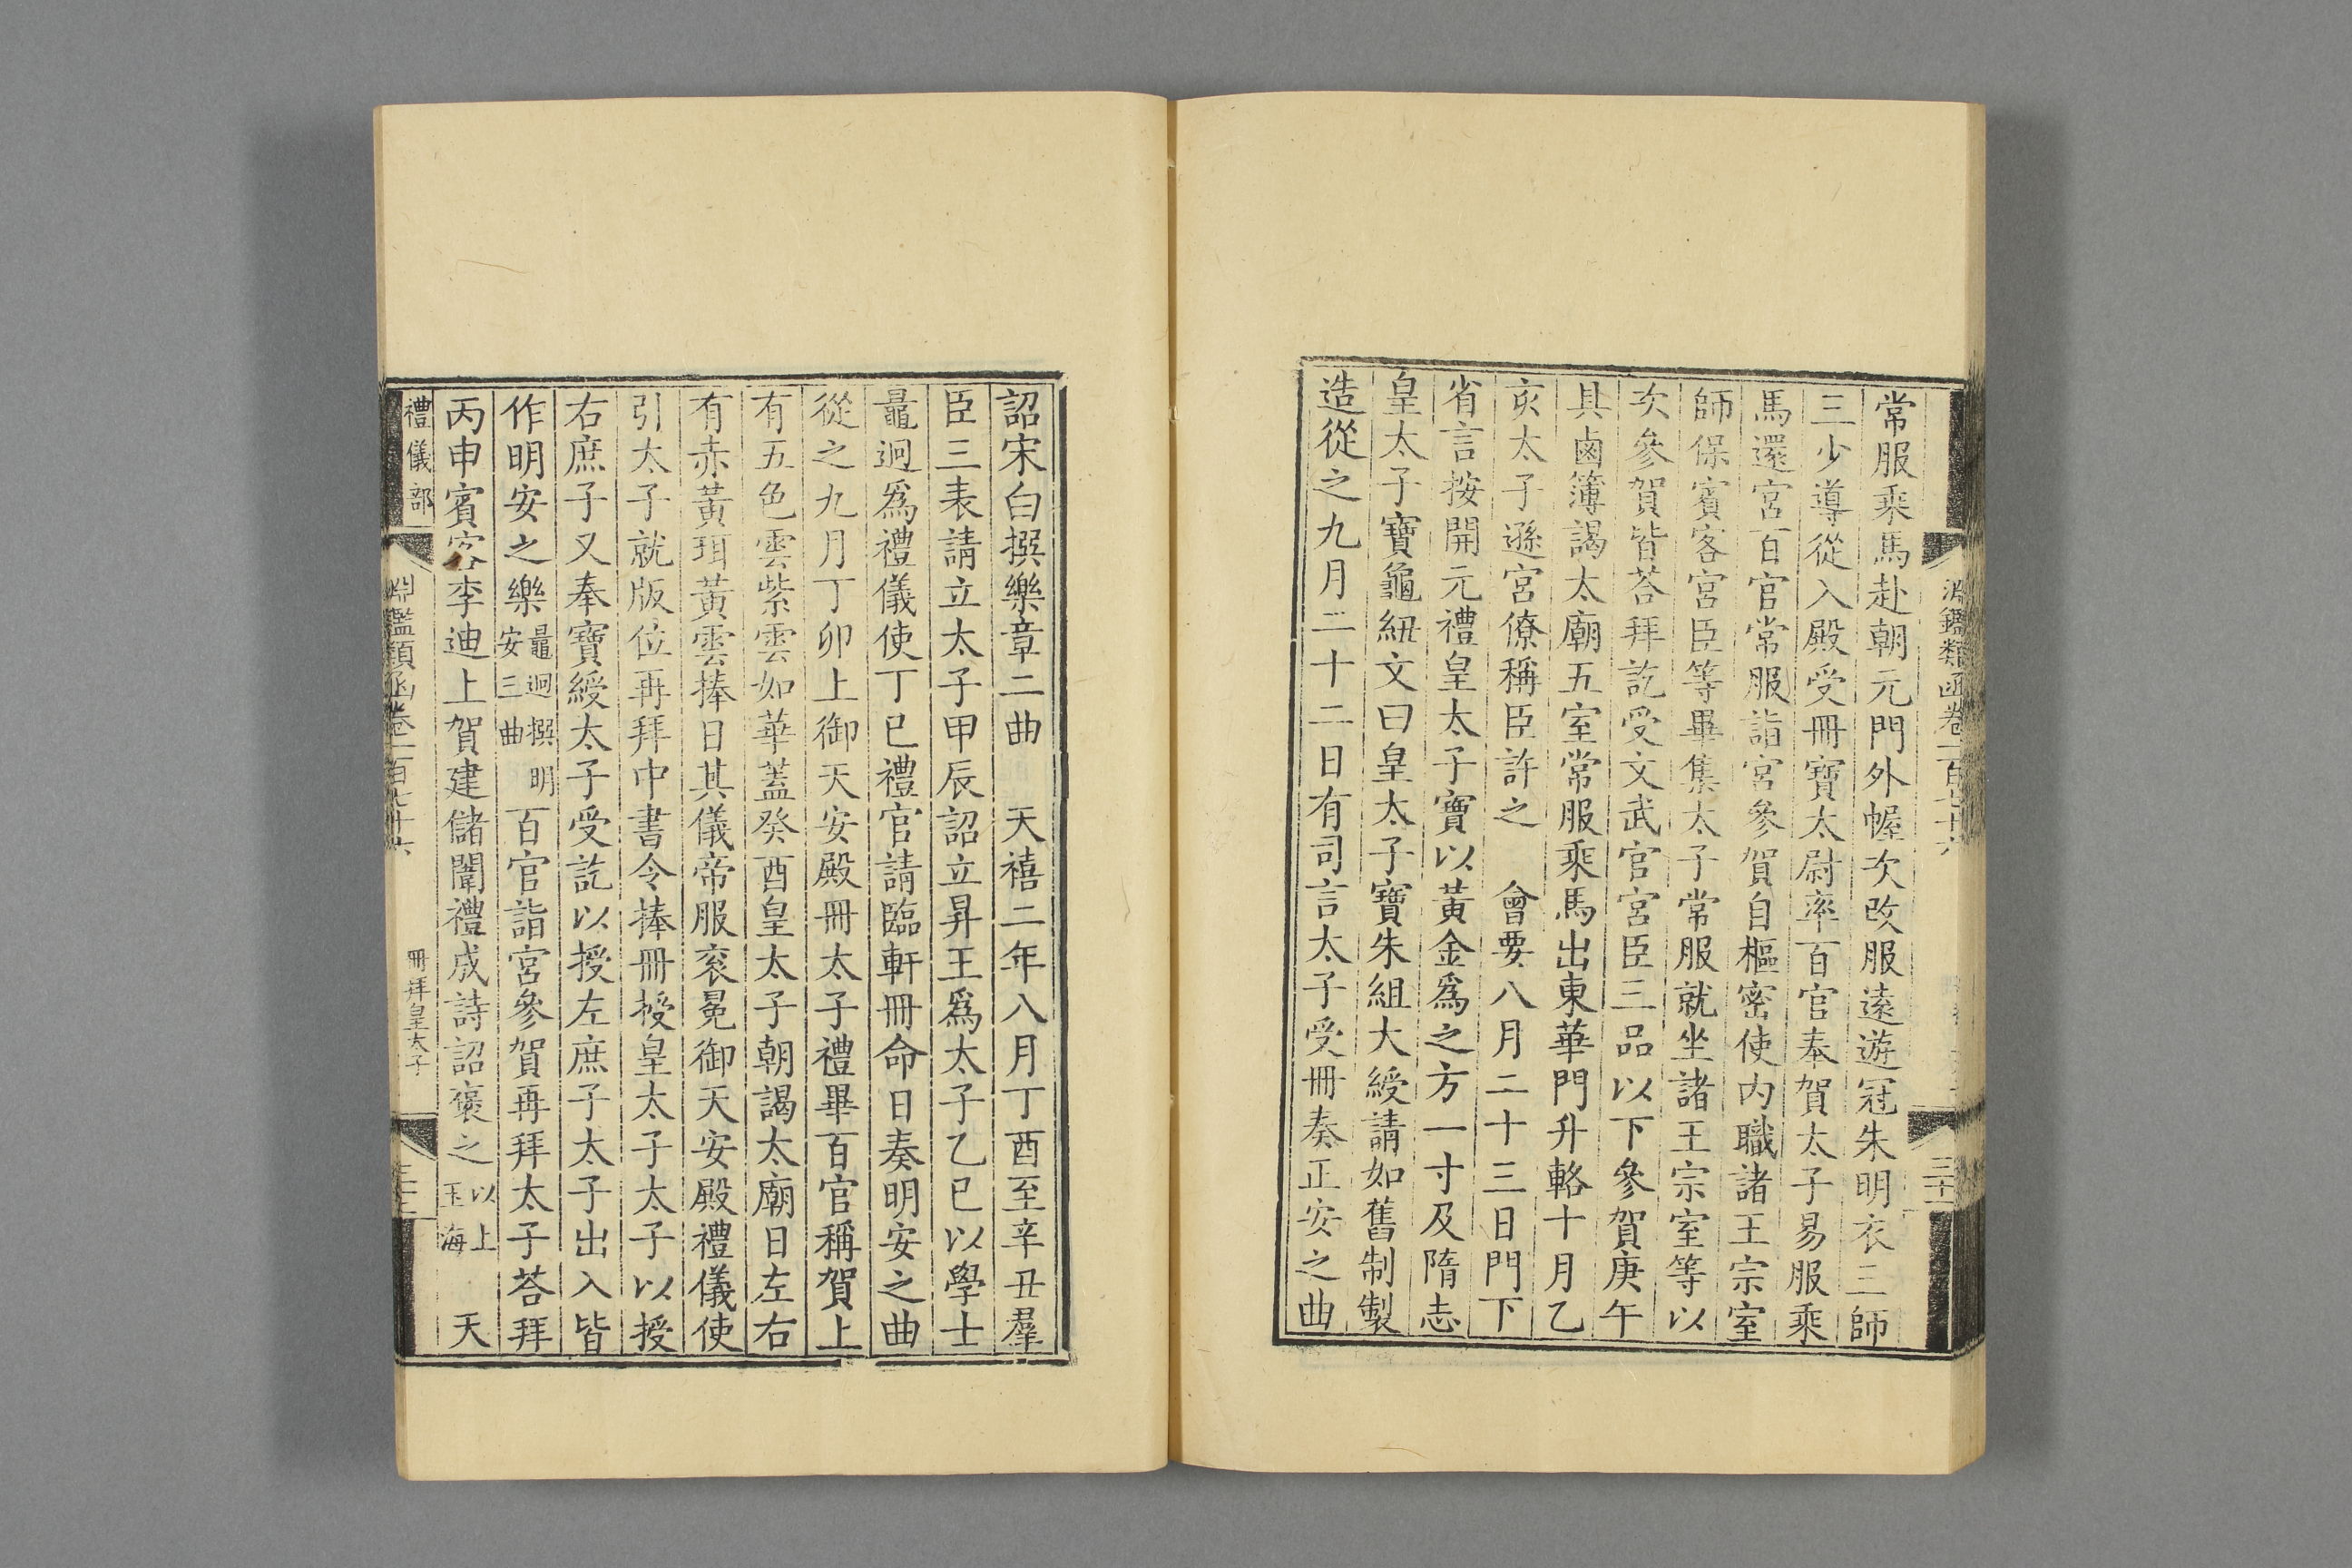 淵鑑類函卷一百七十六
常服乘馬赴朝元門外幄次改服遠遊冠朱明衣三師
三少導從入殿受冊寶太尉率百官奉賀太子易服乘
馬還宮百官常服詣宮參賀自樞密使內職諸王宗室
師保賓客宮臣等畢集太子常服就坐諸王宗室等以
次參賀皆荅拜訖受文武官宮臣三品以下參賀庚午
具鹵簿謁太廟五室常服乘馬出東華門升輅十月乙
亥太子遜宮僚稱臣許之 會要八月二十三日門下
省言按開元禮皇太子寶以黃金爲之方一寸及隋志
皇太子寶龜紐文曰皇太子寶朱組大綬請如舊制製
造從之九月二十二日有司言太子受冊奏正安之曲
詔宋白撰樂章二曲 天禧二年八月丁酉至辛丑羣
臣三表請立太子甲辰詔立昇王爲太子乙巳以學士
鼂迥爲禮儀使丁巳禮官請臨軒冊命日奏明安之曲
從之九月丁卯上御天安殿冊太子禮畢百官稱賀上
有五色雲紫雲如華蓋癸酉皇太子朝謁太廟日左右
有赤黃珥黃雲捧日其儀帝服衮冕御天安殿禮儀使
引太子就版位再拜中書令捧冊授皇太子太子以授
右庶子又奉寶綬太子受訖以授左庶子太子出入皆
作明安之樂鼂迥撰明安三曲百官詣宮參賀再拜太子荅拜
丙申賓客李迪上賀建儲闈禮成詩詔褒之以上玉海 天
禮儀部
淵鑑類函卷一百七十六
冊拜皇太子